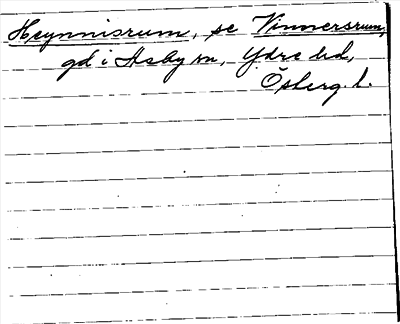 Heynnisrum, se Vinnersrum,
gd i Asby sn, Ydre hd,
Österg. l.